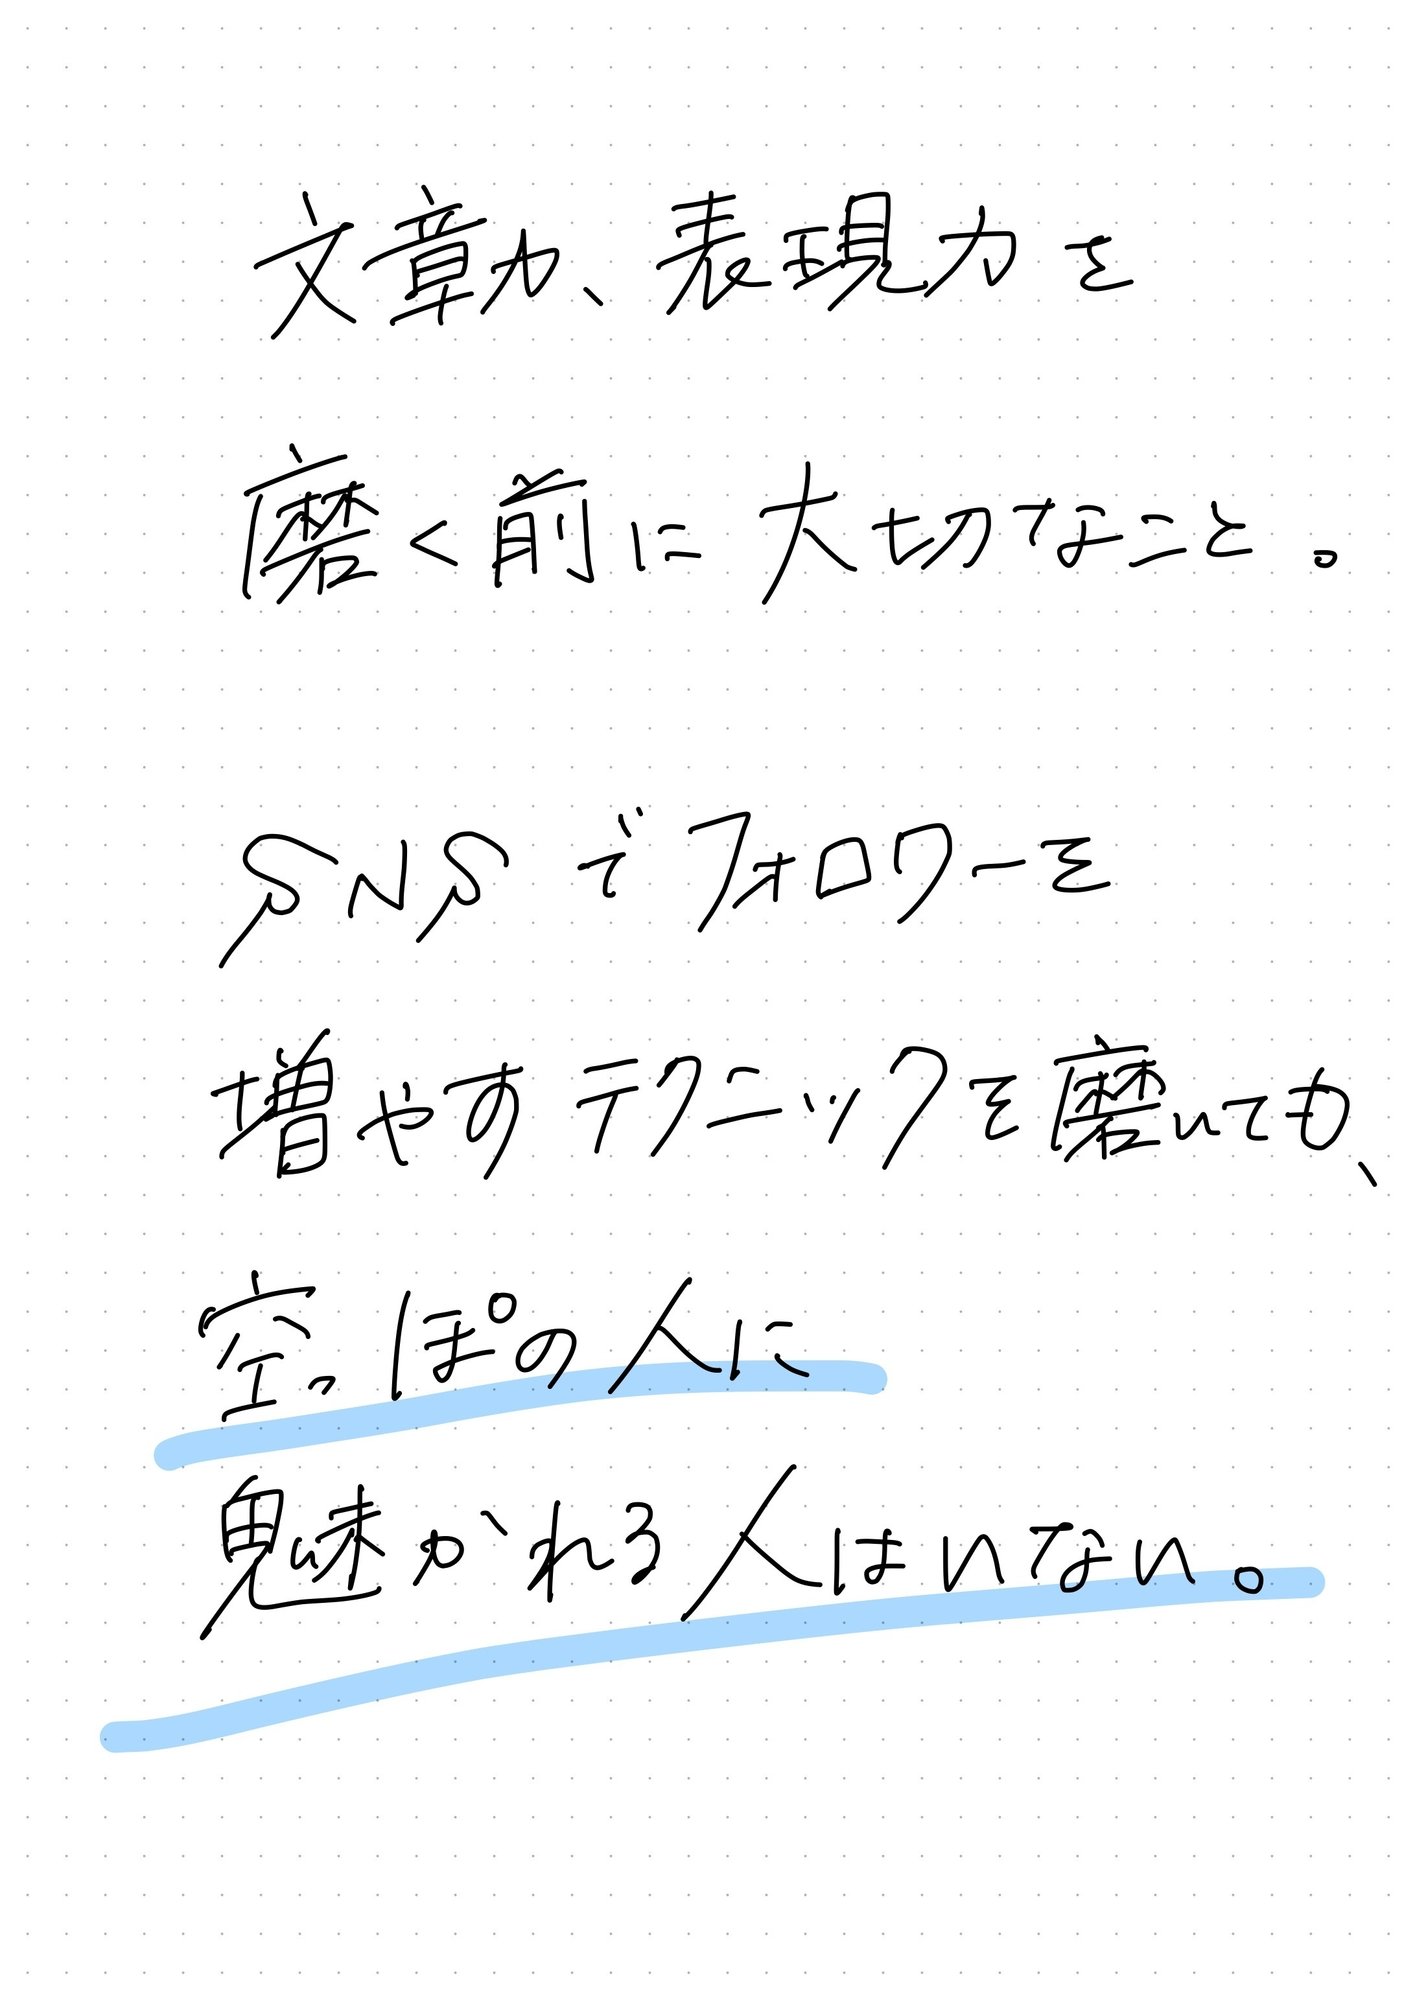 文章力、表現力を
磨く前に大切なこと。
SNSでフォロワーを
増やすテクニックを磨いても、
空っぽの人に
魅かれる人はいない。